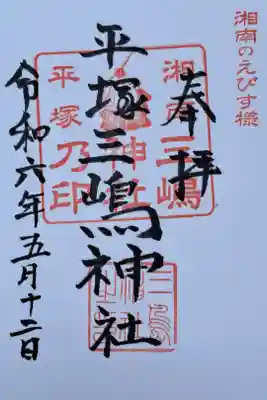 湘南のえびす様
奉拝
湘南三嶋
神社
平塚乃印
平塚三嶋神社
三島
神社
令和六年五月十二日